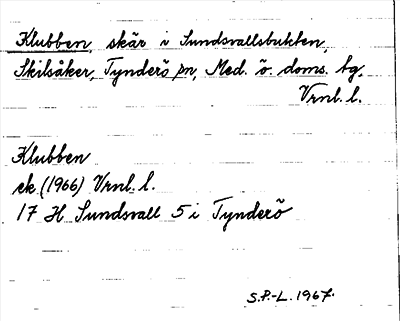 Klubben, skär i Sundsvallsbukten,
Skilsåker, Tynderö sn, Med. ö. doms. tg,
Vrnl. l.
Klubben
ek. (1966) Vrnl. l.
17 H Sundsvall 5 i Tynderö
S.P.-L. 1967.